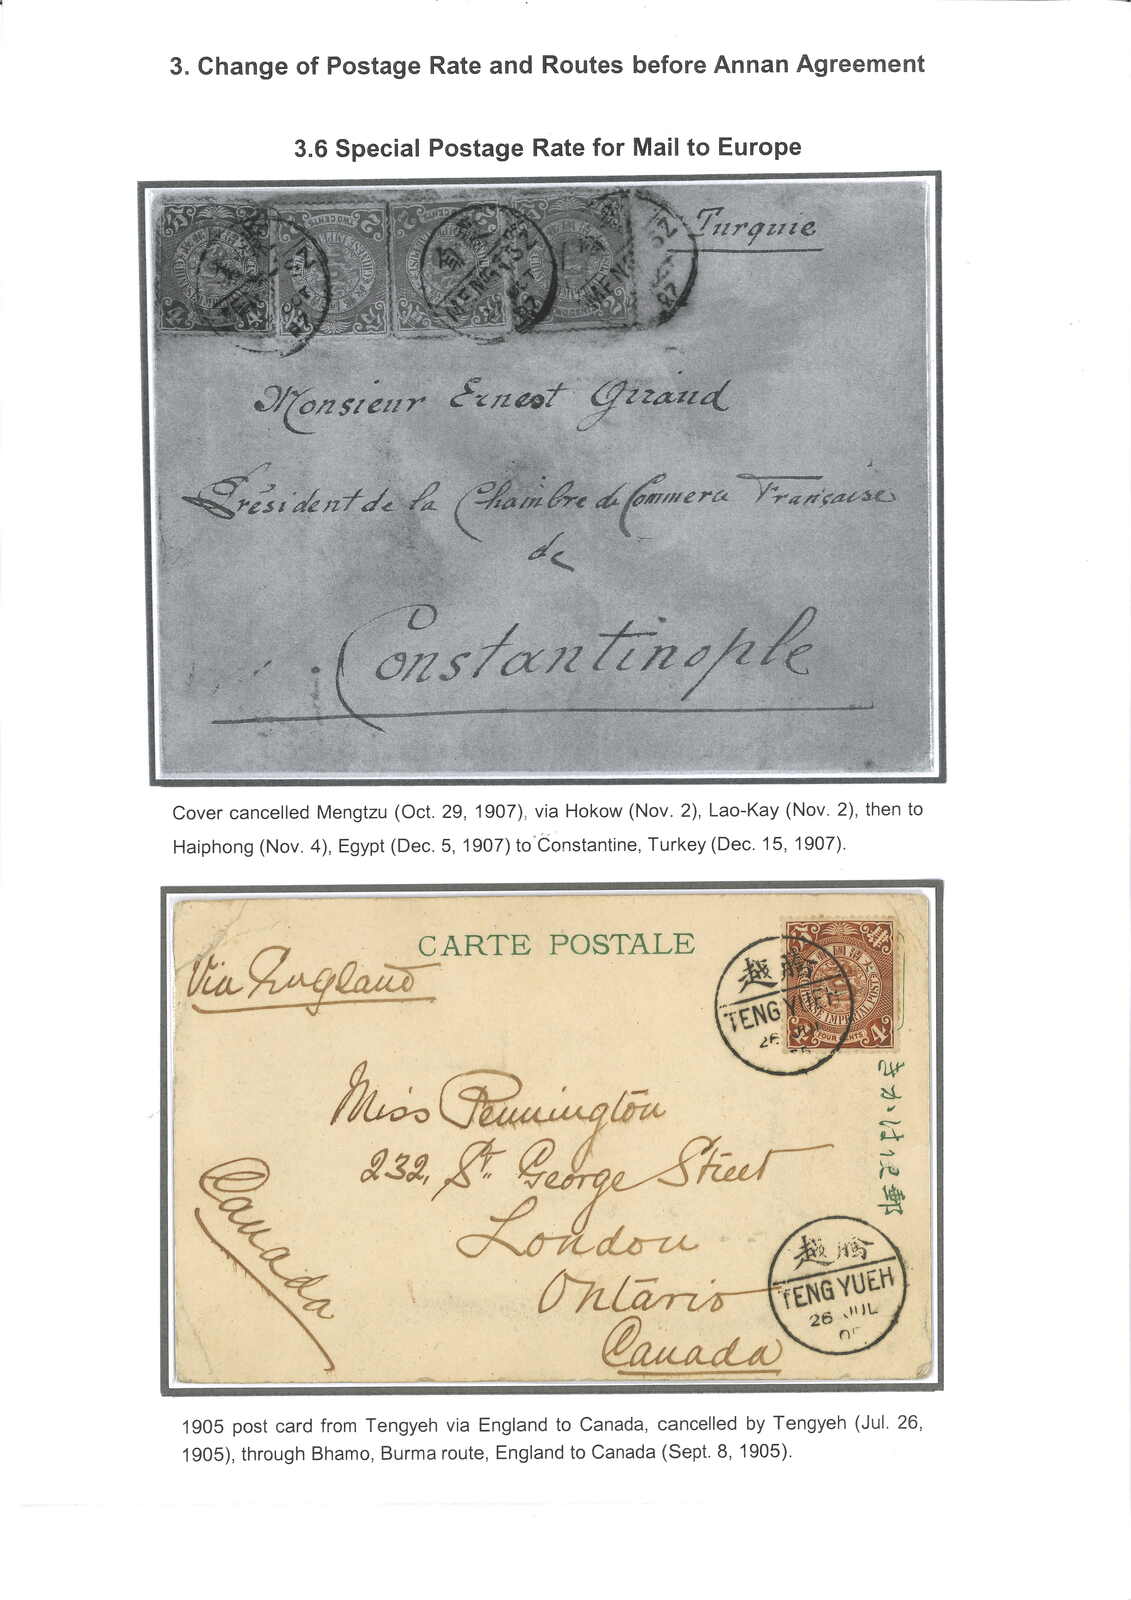 3. Change of Postage Rate and Routes before Annan Agreement
3.6 Special Postage Rate for Mail to Europe
TWO CENTS
Turquie
Monsieur Ernest Giraud
Président de la Chambre de Commerce Française
de
Constantinople
Cover cancelled Mengtzu (Oct. 29, 1907), via Hokow (Nov. 2), Lao-Kay (Nov. 2), then to
Haiphong (Nov. 4), Egypt (Dec. 5, 1907) to Constantine, Turkey (Dec. 15, 1907).
CARTE POSTALE
Via England
越騰
TENG YUEH
26 JUL
CHINESE IMPERIAL POST
4
FOUR CENTS
4
きかはび郵
Miss Pennington
232, St. George Street
London
Ontario
Canada
Canada
越騰
TENG YUEH
26 JUL
1905 post card from Tengyeh via England to Canada, cancelled by Tengyeh (Jul. 26,
1905), through Bhamo, Burma route, England to Canada (Sept. 8, 1905).